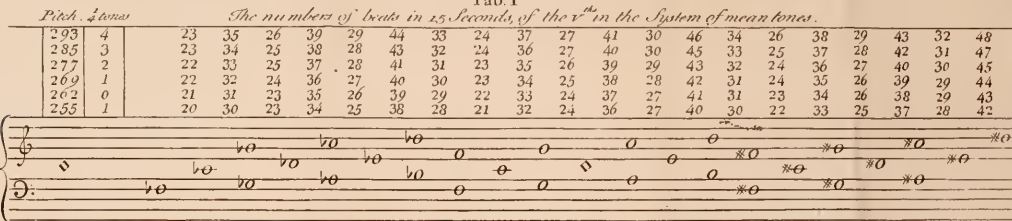 Tab. I
Pitch. ¼ tones The numbers of beats in 15 Seconds, of the vth in the System of mean tones.
293 4 23 35 26 39 29 44 33 24 37 27 41 30 46 34 26 38 29 43 32 48
285 3 23 34 25 38 28 43 32 24 36 27 40 30 45 33 25 37 28 42 31 47
277 2 22 33 25 37 28 41 31 23 35 26 39 29 43 32 24 36 27 40 30 45
269 1 22 32 24 36 27 40 30 23 34 25 38 28 42 31 24 35 26 39 29 44
262 0 21 31 23 35 26 39 29 22 33 24 37 27 41 31 23 34 26 38 29 43
255 1 20 30 23 34 25 38 28 21 32 24 36 27 40 30 22 33 25 37 28 42